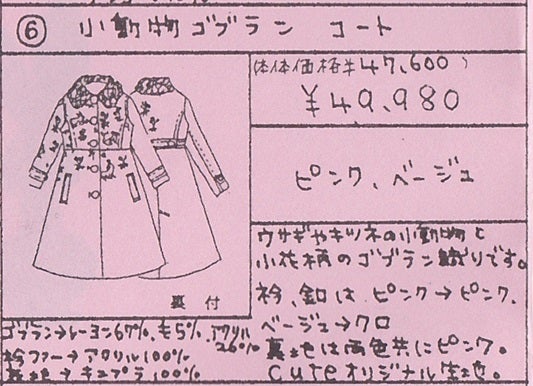 ⑥ 小動物ゴブラン コート
(本体価格¥47,600)
¥49,980
ピンク、ベージュ
裏付
ウサギやキツネの小動物と
小花柄のゴブラン織りです。
衿、釦は ピンク→ピンク、
ベージュ→クロ
裏地は両色共にピンク。
cuteオリジナル生地。
ゴブラン→レーヨン67%、毛5%、アクリル
衿ファー→アクリル100%
裏地→キュプラ100%